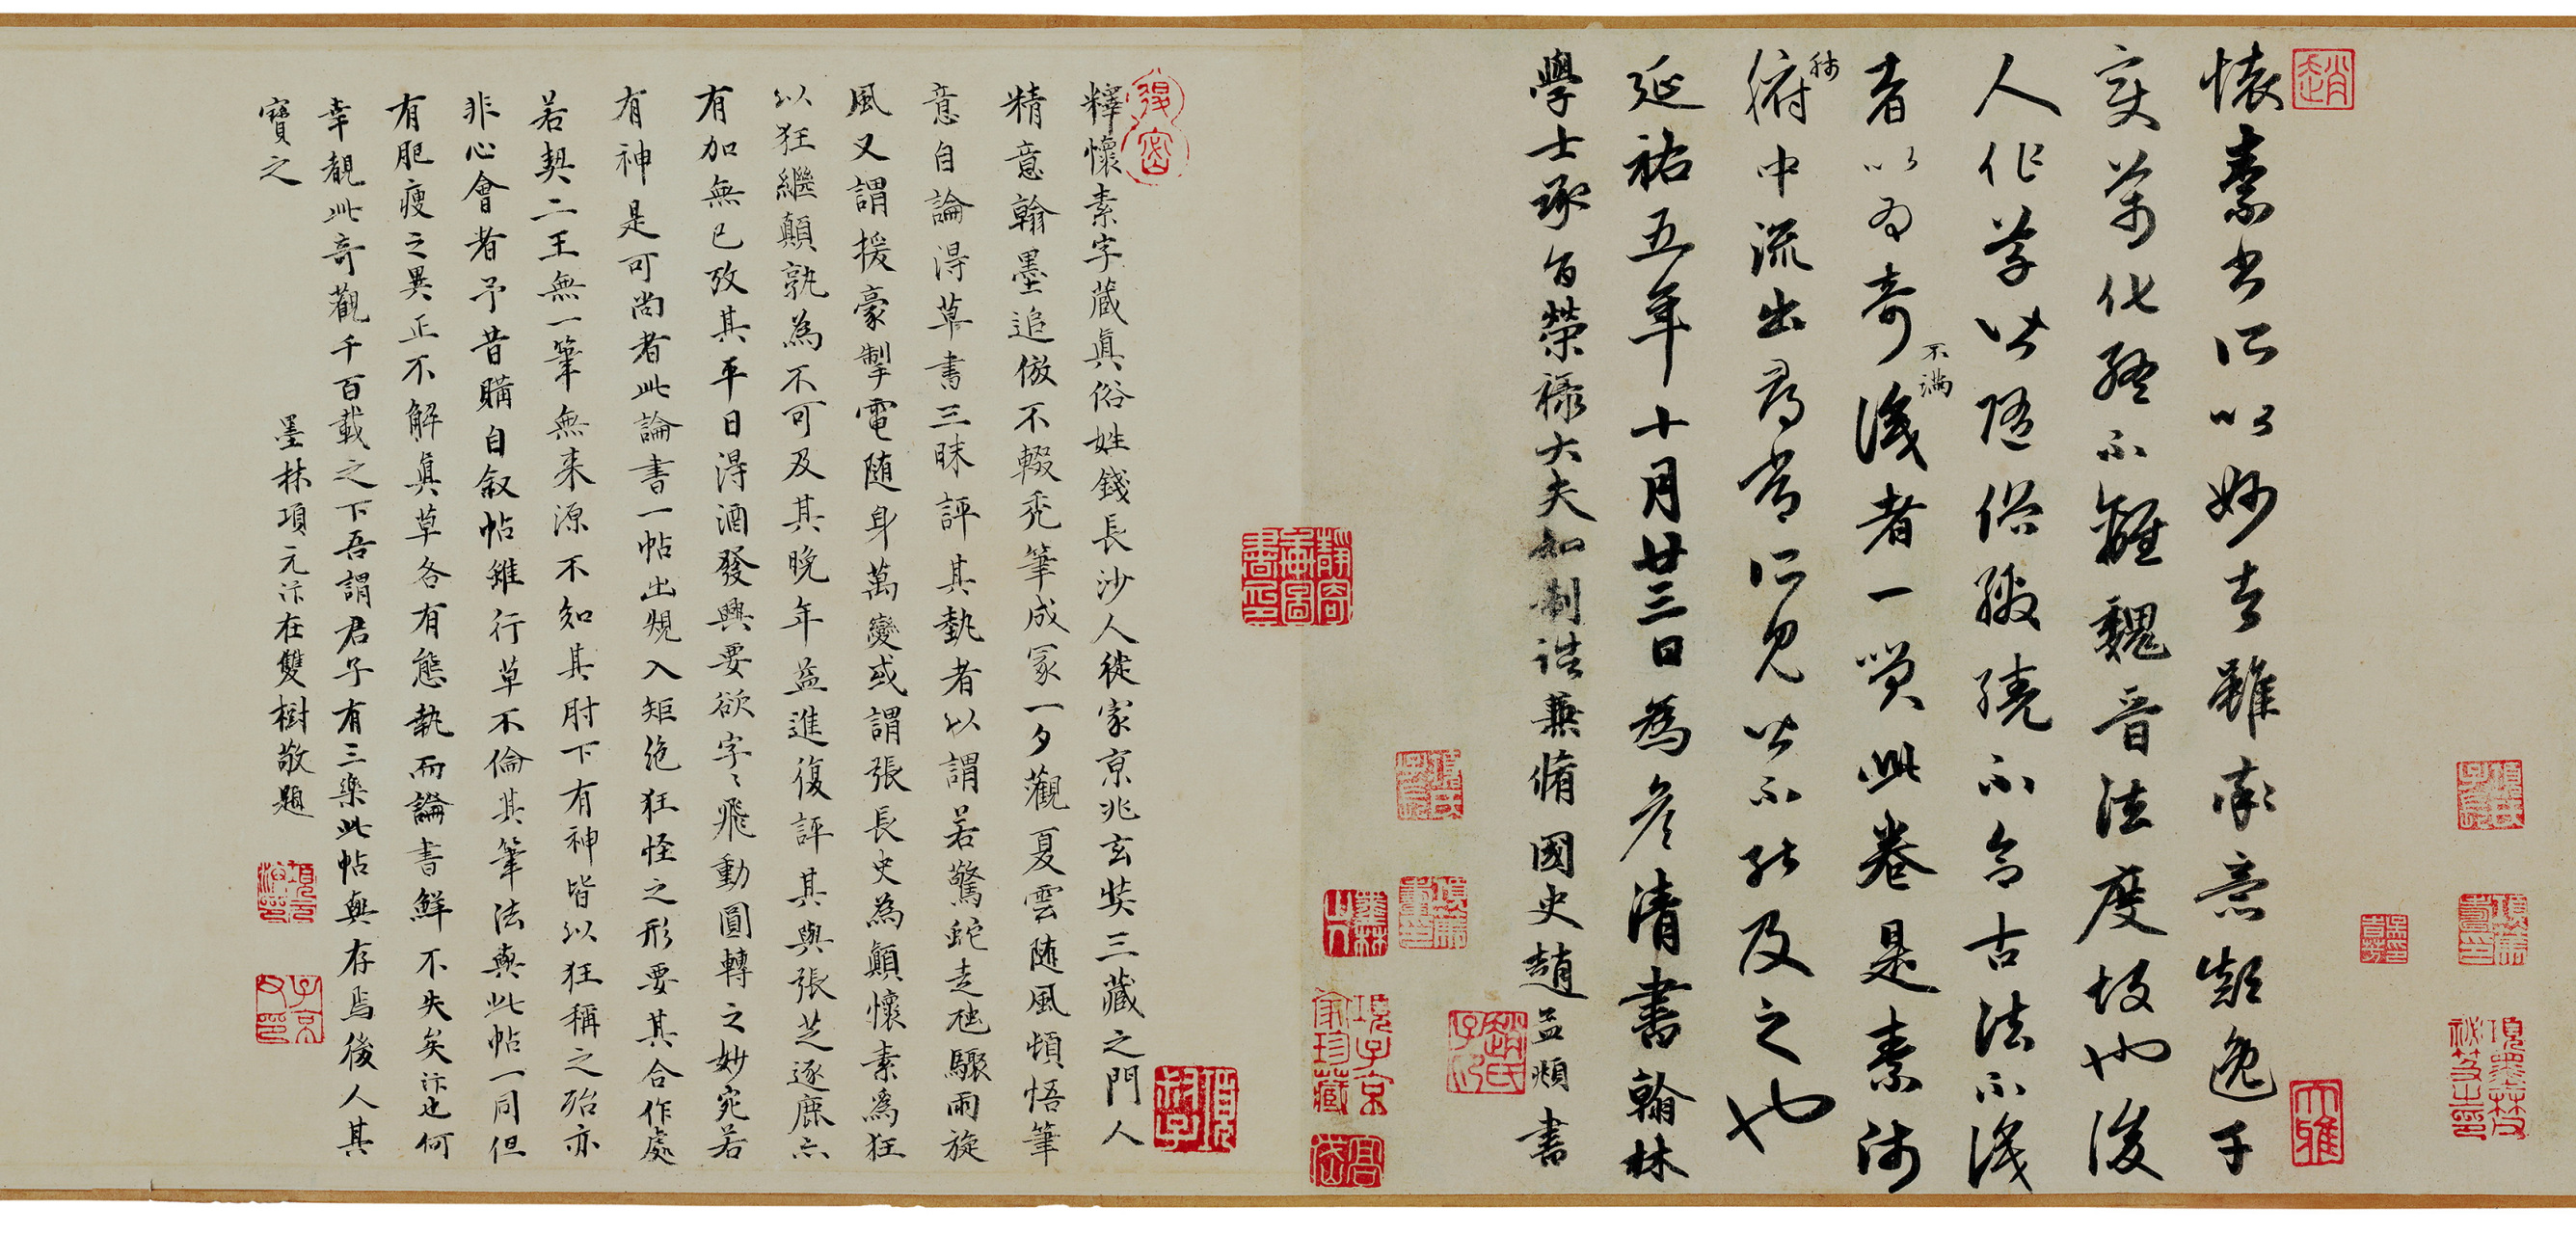 懷素書所以妙者雖率意顛逸千
變萬化終不離魏晉法度故也後
人作草皆隨俗繳繞不合古法不識
者以為奇不滿識者一笑此卷是素師
肺腑中流出尋常所見皆不能及之也
延祐五年十月廿三日為彥清書翰林
學士承旨榮祿大夫知制誥兼脩國史趙孟頫書
釋懷素字藏真俗姓錢長沙人徙家京兆玄奘三藏之門人
精意翰墨追倣不輟禿筆成冢一夕觀夏雲隨風頓悟筆
意自論得草書三昧評其執者以謂若驚蛇走虺驟雨旋
風又謂援豪掣電隨身萬變或謂張長史為顛懷素為狂
以狂繼顛孰為不可及其晚年益進復評其與張芝逐鹿亦
有加無已攷其平日得酒發興要欲字字飛動圓轉之妙宛若
有神是可尚者此論書一帖出規入矩絕狂怪之形要其合作處
若契二王無一筆無來源不知其肘下有神皆以狂稱之殆亦
非心會者予昔購自叙帖雖行草不倫其筆法與此帖一同但
有肥瘦之異正不解真草各有態執而論書鮮不失矣汴也何
幸覩此奇觀千百載之下吾謂君子有三樂此帖與存焉後人其
寶之
墨林項元汴在雙樹敬題